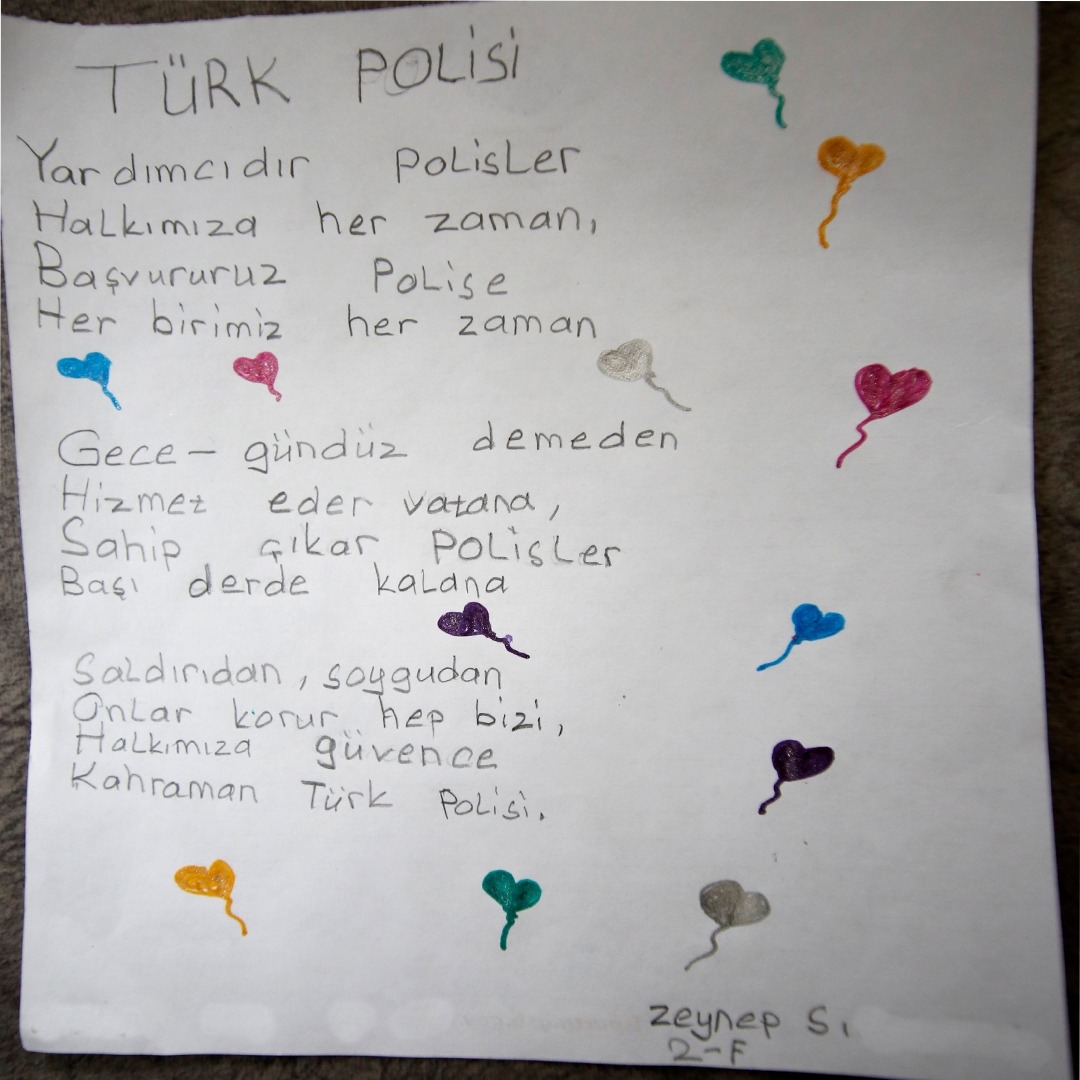 TÜRK POLİSİ
Yardımcıdır Polisler
Halkımıza her zaman,
Başvururuz Polise
Her birimiz her zaman
Gece - gündüz demeden
Hizmet eder vatana,
Sahip çıkar Polisler
Başı derde kalana
Saldırıdan, soygudan
Onlar korur hep bizi,
Halkımıza güvence
Kahraman Türk Polisi.
Zeynep S.
2-F